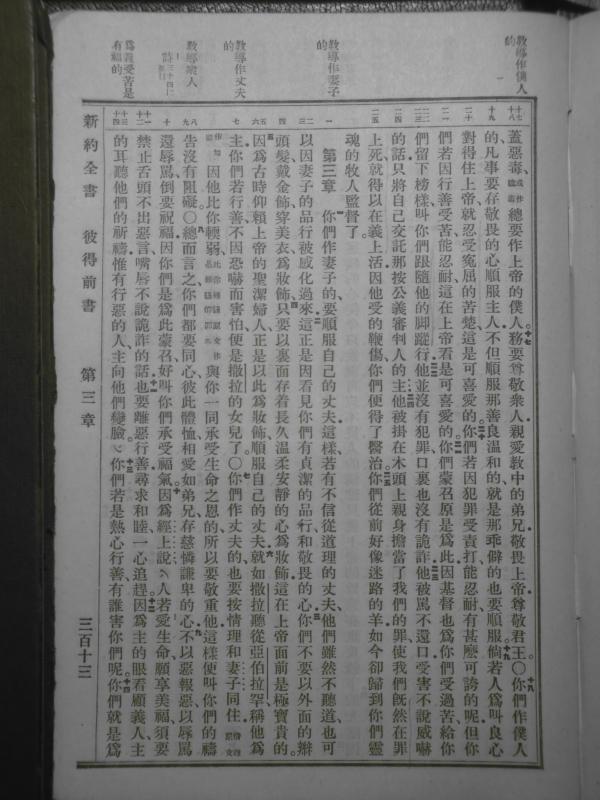 教導作僕人的
教導作妻子的
教導作丈夫的
教導衆人
詩三十四
爲義受苦是有福的
十七十八
蓋惡毒或作陰毒總要作上帝的僕人十七務要尊敬衆人親愛教中的弟兄敬畏上帝尊敬君王○十八你們作僕人
十九
的凡事要存敬畏的心順服主人不但順服那善良溫和的就是那乖僻的也要順服十九倘若人爲叫良心
二十
對得住上帝就忍受冤屈的苦楚這是可喜愛的二十你們若因犯罪受責打能忍耐有甚麼可誇的呢但你
二一
們若因行善受苦能忍耐這在上帝看是可喜愛的二一你們蒙召原是爲此因基督也爲你們受過苦給你
二二二三
們留下榜樣叫你們跟隨他的脚蹤行二二他並沒有犯罪口裏也沒有詭詐二三他被罵不還口受害不說威嚇
二四
的話只將自己交託那按公義審判人的主二四他被掛在木頭上親身擔當了我們的罪使我們旣然在罪
二五
上死就得以在義上活因他受的鞭傷你們便得了醫治二五你們從前好像迷路的羊如今卻歸到你們靈
魂的牧人監督了。
一
第三章 一你們作妻子的要順服自己的丈夫這樣若有不信從道理的丈夫他們雖然不聽道也可
二三
以因妻子的品行被感化過來二這正是因看見你們有貞潔的品行和敬畏的心三你們不要以外面的辮
四
頭髮戴金飾穿美衣爲妝飾四只要以裏面存着長久溫柔安靜的心爲妝飾這在上帝面前是極寶貴的
五六
因爲古時仰賴上帝的聖潔婦人正是以此爲妝飾順服自己的丈夫六就如撒拉聽從亞伯拉罕稱他爲
七
主你們若行善不因恐嚇而害怕便是撒拉的女兒了○七你們作丈夫的也要按情理和妻子同住
因他比你輭弱與你一同承受生命之恩的所以要敬重他這樣便叫你們的禱
八九
告沒有阻礙○八總而言之你們都要同心彼此體恤相愛如弟兄存慈憐謙卑的心九不以惡報惡以辱罵
十
還辱罵倒要祝福因你們是爲此蒙召好叫你們承受福氣十因爲經上說人若愛生命願享美福須要
十一十二
禁止舌頭不出惡言嘴唇不說詭詐的話十一也要離惡行善尋求和睦一心追趕十二因爲主的眼看顧義人主
十三十四
的耳聽他們的祈禱惟有行惡的人主向他們變臉十三你們若是熱心行善有誰害你們呢十四你們就是爲
新約全書 彼得前書 第三章 三百十三